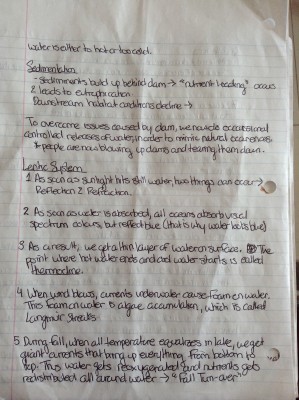 water is either to hot or too cold.
Sedimentation
- sediments build up behind dam → "nutrient loading" occurs
& leads to eutrophication.
Downstream habitat conditions decline →
To overcome issues caused by dam, we now use occasional
controlled releases of water, in order to mimic natural occurences.
* people are now blowing up dams and tearing them down.
Lentic System
1. As soon as sunlight hits still water, two things can occur →
Reflection & Refraction.
2. As soon as water is absorbed, all oceans absorb visual
spectrum colours, but reflect blue (that is why water looks blue)
3. As a result, we get a thin layer of water on surface. The
point where hot water ends and cold water starts is called
thermocline.
4. When wind blows, currents underwater cause foam on water.
This foam on water & algae accumulation, which is called
Langmuir Streaks.
5. During fall, when all temperature equalizes in lake, we get
giant currents that bring up everything from bottom to
top. Thus water gets reoxygenated and nutrients gets
redistributed all around water → "Fall Turn-over"